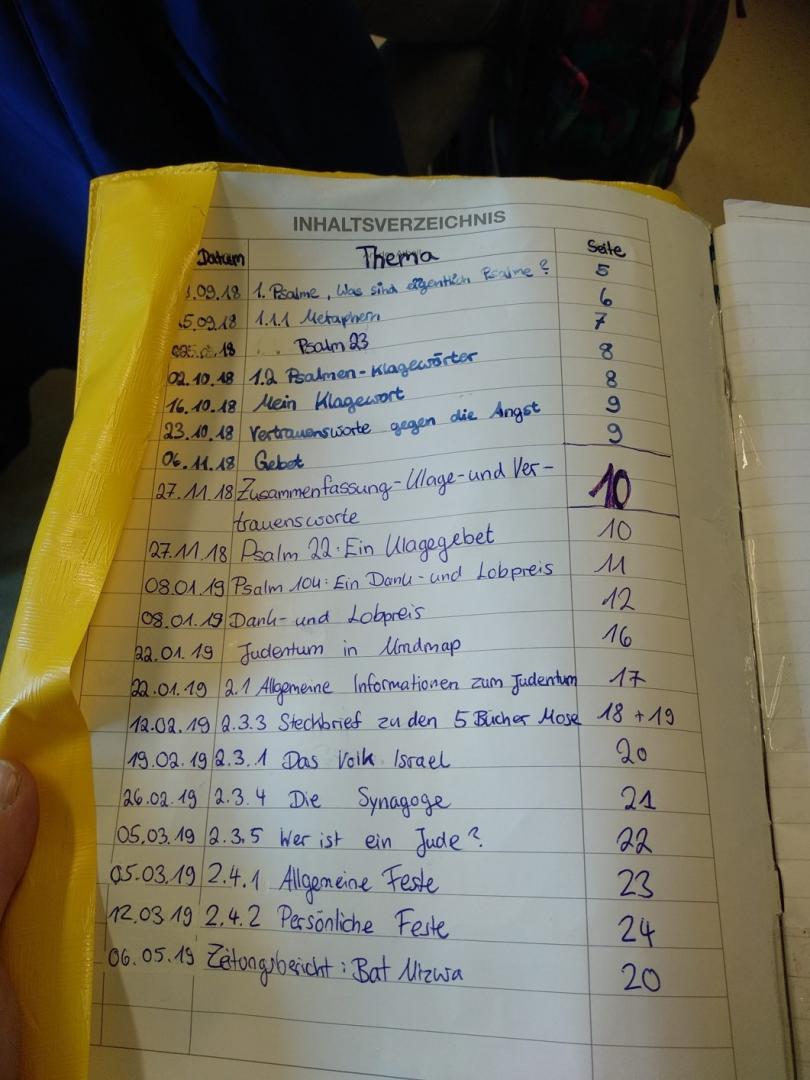 INHALTSVERZEICHNIS
Datum Thema Seite
.09.18 1. Psalme, Was sind eigentlich Psalme? 5
5.09.18 1.1.1 Metaphern 6
18 Psalm 23 7
02.10.18 1.2 Psalmen-Klagewörter 8
16.10.18 Mein Klagewort 8
23.10.18 Vertrauensworte gegen die Angst 9
06.11.18 Gebet 9
27.11.18 Zusammenfassung-Klage-und Ver- 10
trauensworte
27.11.18 Psalm 22: Ein Klagegebet 10
08.01.19 Psalm 104: Ein Dank- und Lobpreis 11
08.01.19 Dank- und Lobpreis 12
22.01.19 Judentum in Mindmap 16
22.01.19 2.1 Allgemeine Informationen zum Judentum 17
12.02.19 2.3.3 Steckbrief zu den 5 Bücher Mose 18 + 19
19.02.19 2.3.1 Das Volk Israel 20
26.02.19 2.3.4 Die Synagoge 21
05.03.19 2.3.5 Wer ist ein Jude? 22
05.03.19 2.4.1 Allgemeine Feste 23
12.03.19 2.4.2 Persönliche Feste 24
06.05.19 Zeitungsbericht: Bat Mizwa 20